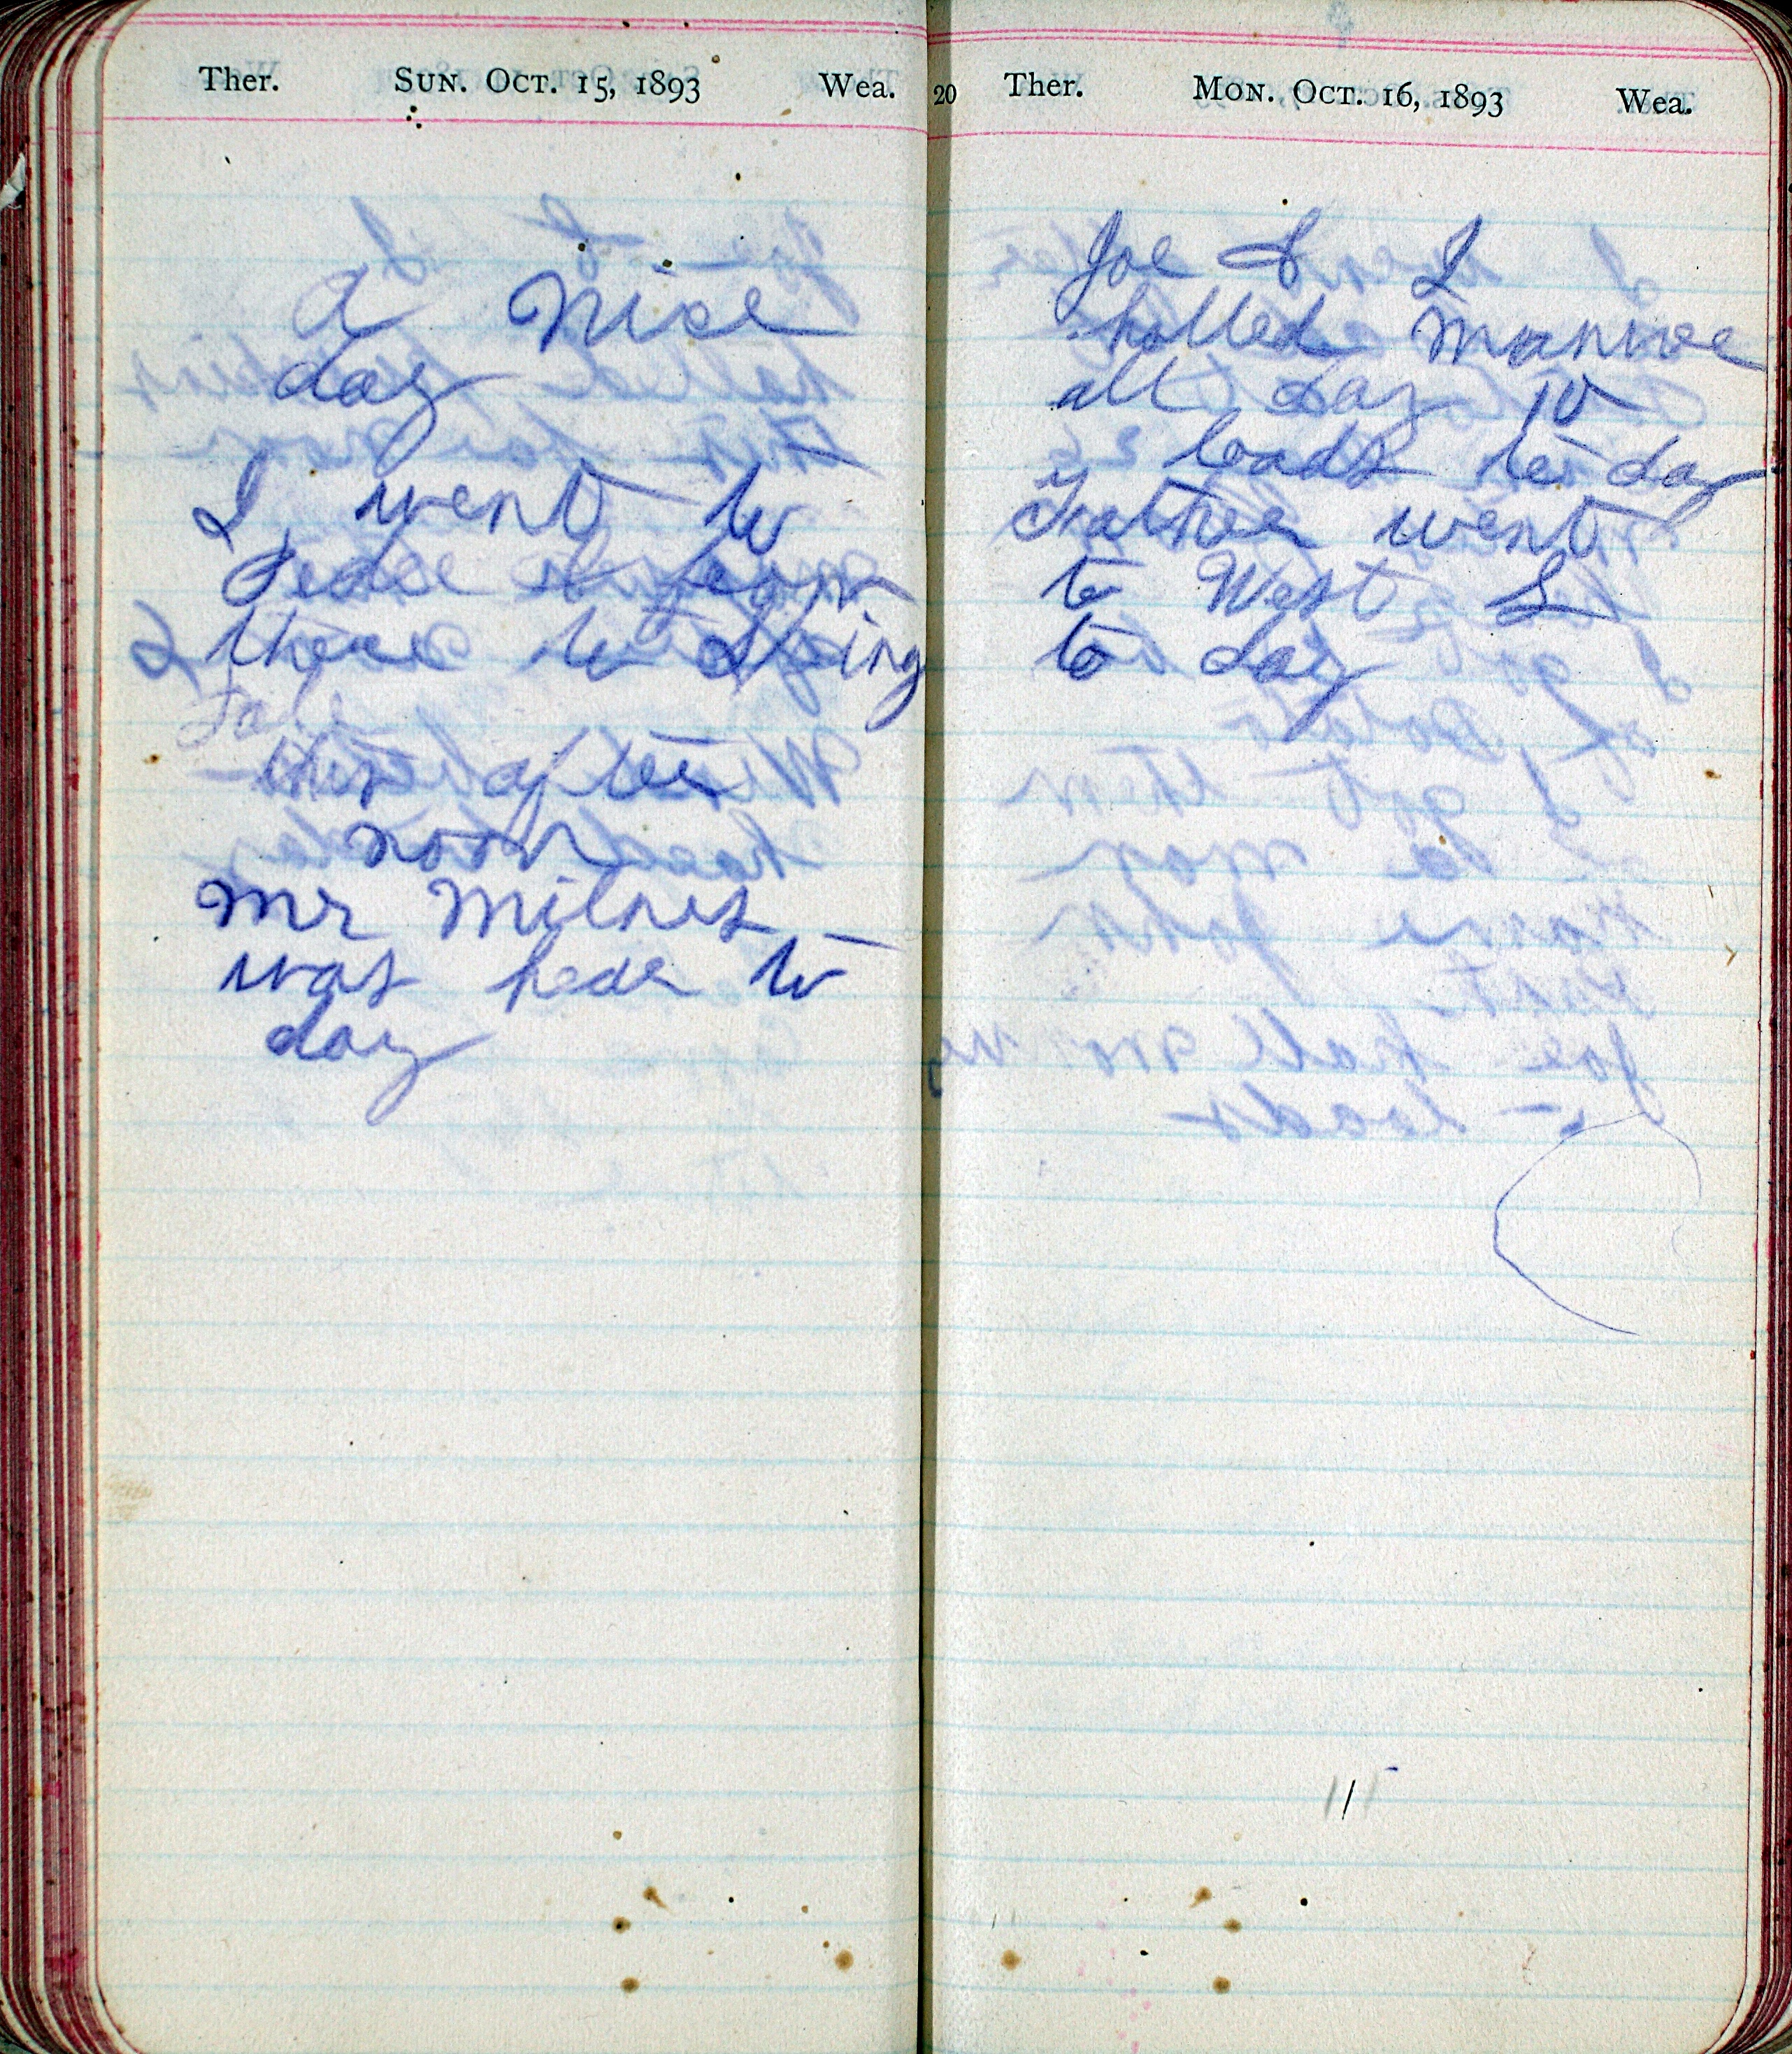 Ther. Sun. Oct. 15, 1893 Wea.
A nice
day
I went to
&
& thence to Spring
Fall
this after
noon
Mr Milnes
was heder to
day
20 Ther. Mon. Oct. 16, 1893 Wea.
Joe & I
holled manure
all day 10
loads to day
Father went
to West S
to day